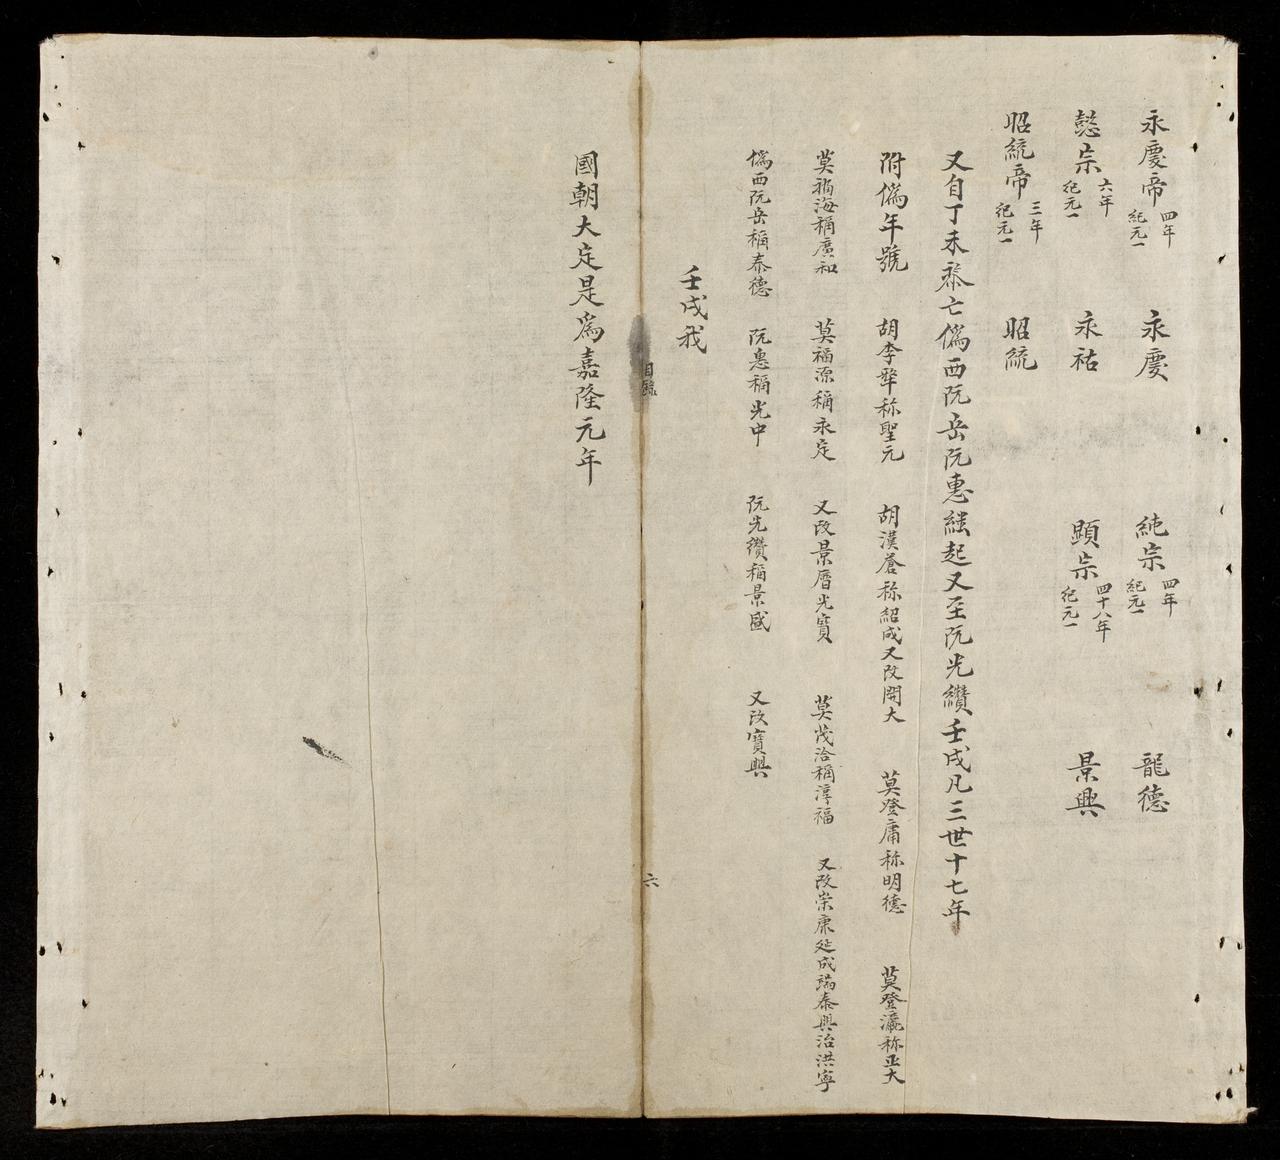 永慶帝 四年 紀元一 永慶 純宗 四年 紀元一 龍德
懿宗 六年 紀元一 永祐 顯宗 四十八年 紀元一 景興
昭統帝 三年 紀元一 昭統
又自丁未黎亡僞西阮岳阮惠継起又至阮光纘壬戌凡三世十七年
附僞年號 胡季犛称聖元 胡漢蒼称紹成又改開大 莫登庸称明德 莫登瀛称正大
莫福海稱廣和 莫福源稱永定 又改景曆光寶 莫茂洽稱淳福 又改崇康延成端泰興治洪寧
僞西阮岳稱泰德 阮惠稱光中 阮光纘稱景盛 又改寶興
壬戌我
目錄
六
國朝大定是爲嘉隆元年